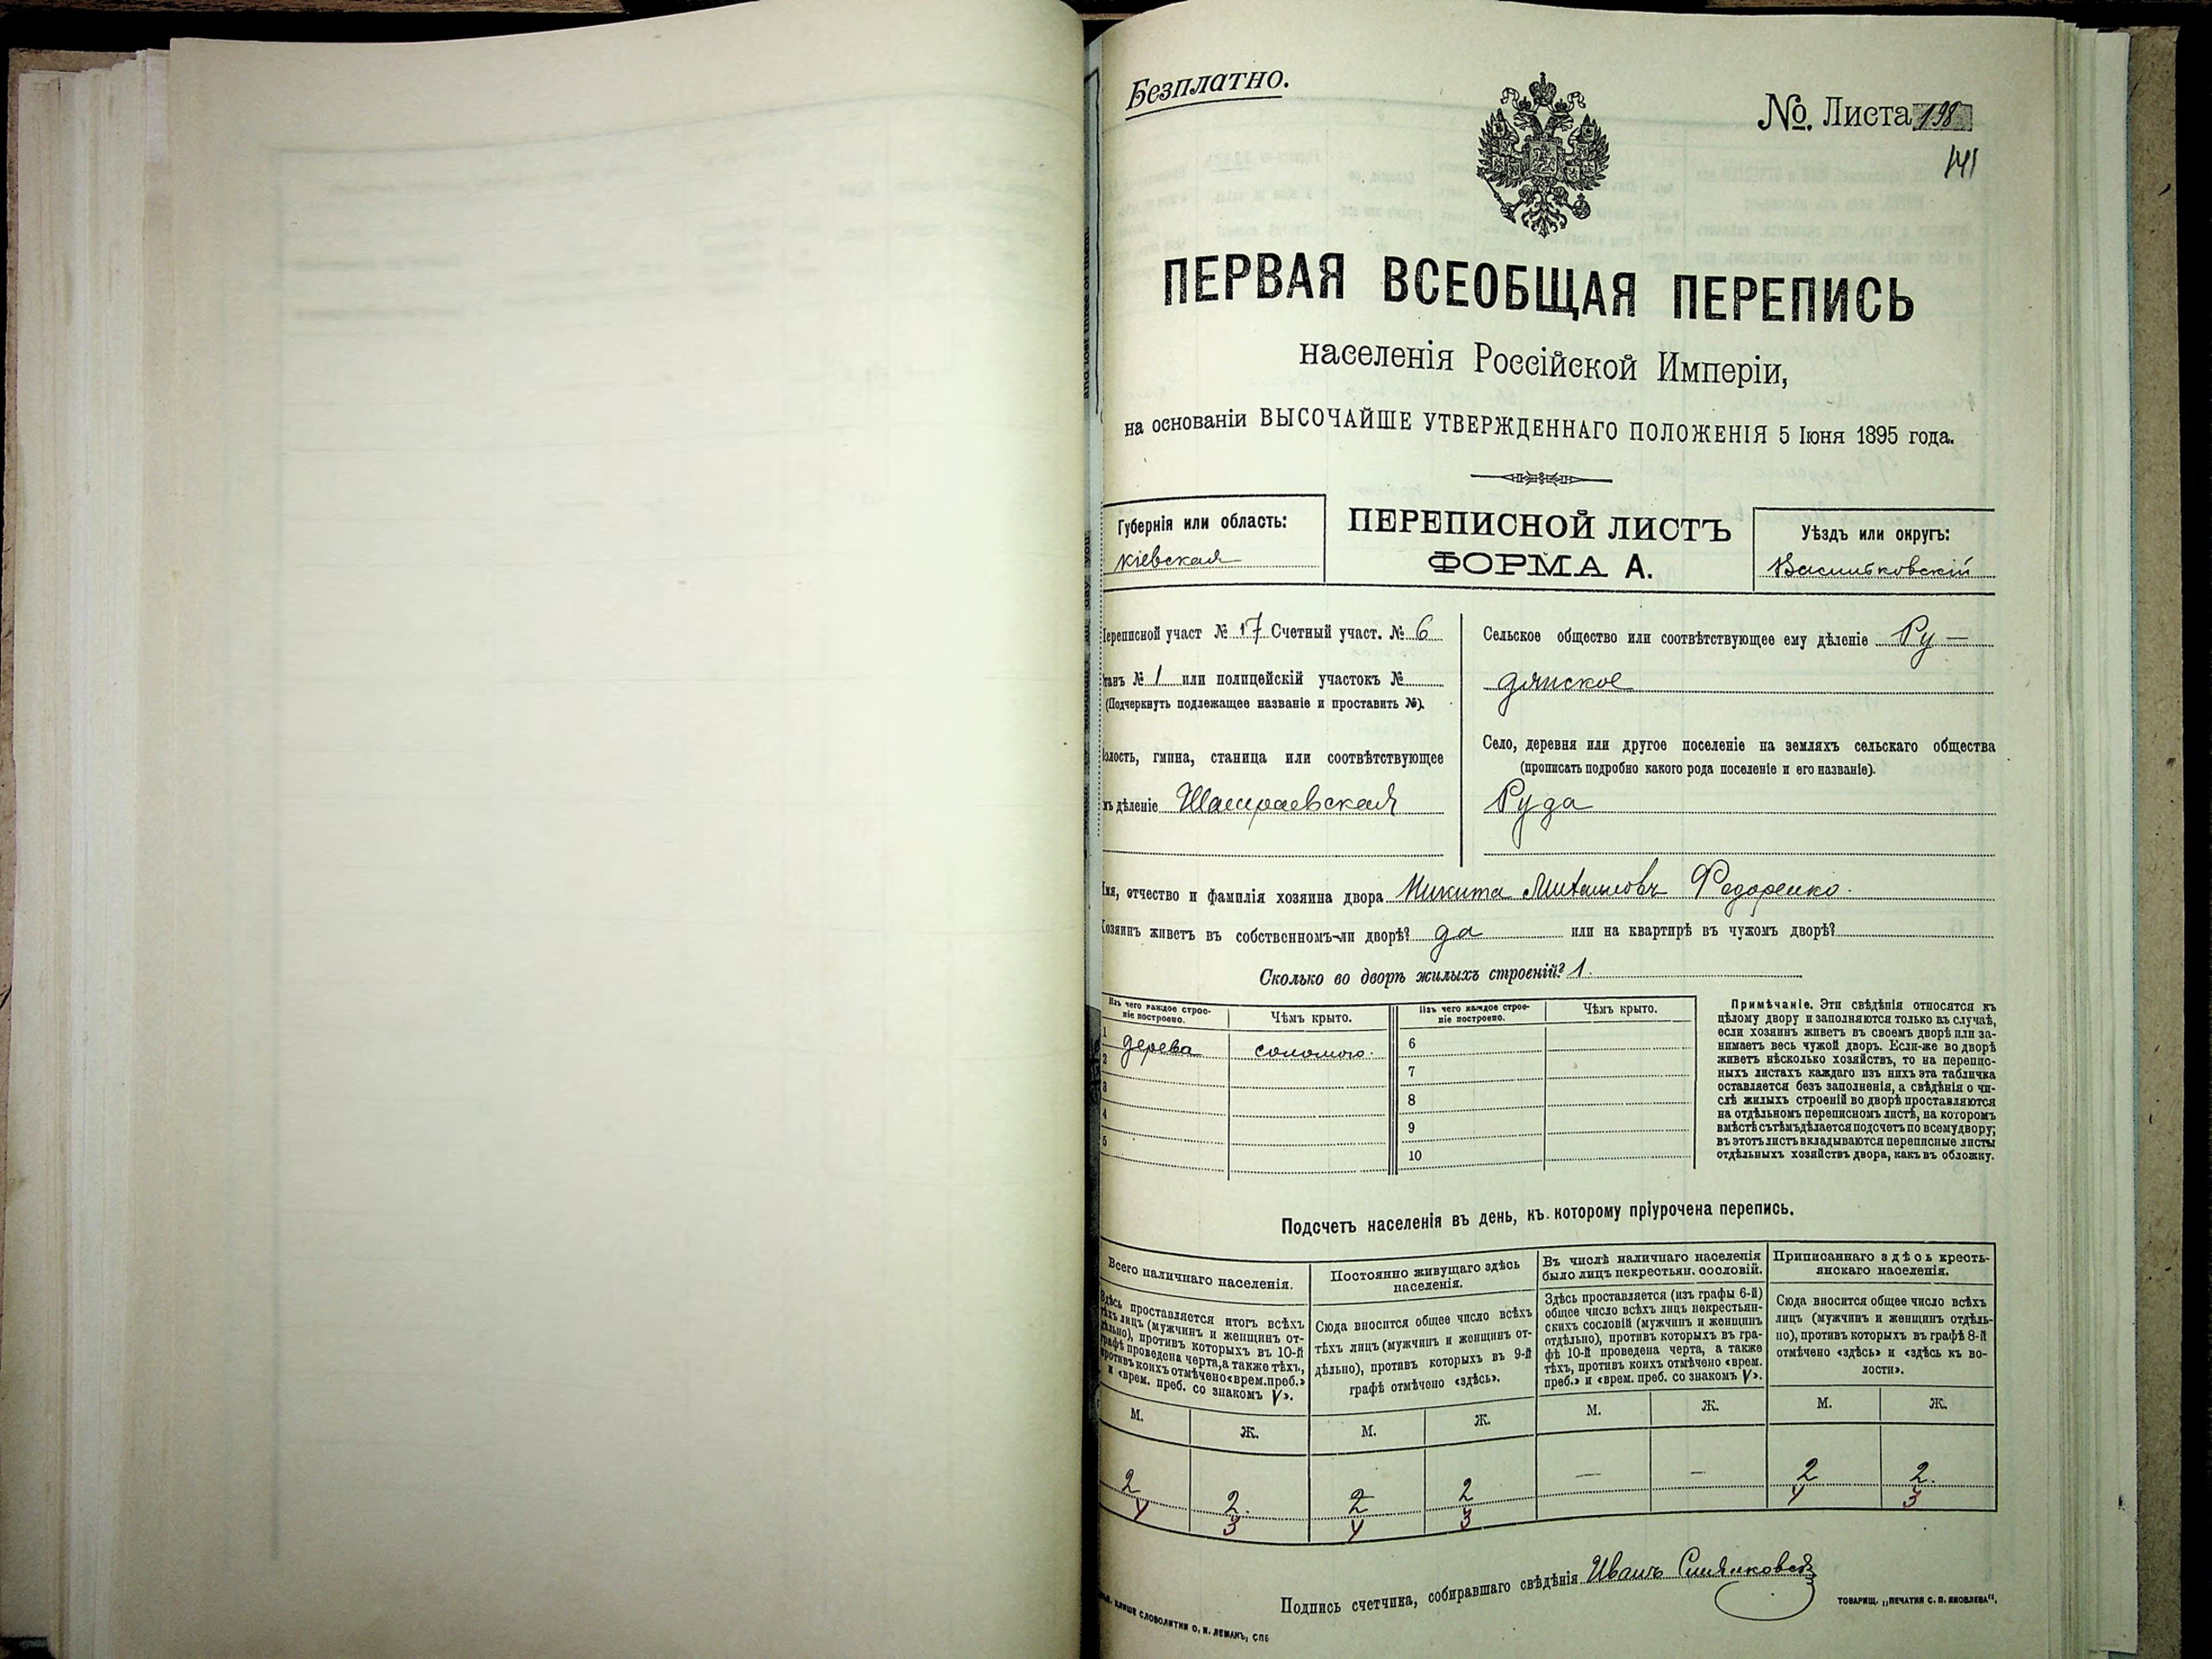 Безплатно.
№ Листа 198
141
ПЕРВАЯ ВСЕОБЩАЯ ПЕРЕПИСЬ
населенія Россійской Имперіи,
на основаніи ВЫСОЧАЙШЕ УТВЕРЖДЕННАГО ПОЛОЖЕНІЯ 5 Іюня 1895 года.
Губернія или область:
Кіевская
ПЕРЕПИСНОЙ ЛИСТЪ
ФОРМА А.
Уѣздъ или округъ:
Васильковскій
Переписной участ № 17 Счетный участ. № 6
станъ № 1 или полицейскій участокъ №
(Подчеркнуть подлежащее названіе и проставить №).
Волость, гмина, станица или соотвѣтствующее
мъ дѣленіе Шамраевская
Сельское общество или соотвѣтствующее ему дѣленіе Ру-
дянское
Село, деревня или другое поселеніе на земляхъ сельскаго общества
(прописать подробно какого рода поселеніе и его названіе).
Руда
Имя, отчество и фамилія хозяина двора Никита Михаиловъ Федоренко.
Хозяинъ живетъ въ собственномъ-ли дворѣ? да или на квартирѣ въ чужомъ дворѣ?
Сколько во дворѣ жилыхъ строеній? 1.
Изъ чего каждое строе-
ніе построено.
Чѣмъ крыто.
Изъ чего каждое строе-
ніе построено.
Чѣмъ крыто.
1 дерева соломою. 6
2 7
3 8
4 9
5 10
Примѣчаніе. Эти свѣдѣнія относятся къ
цѣлому двору и заполняются только въ случаѣ,
если хозяинъ живетъ въ своемъ дворѣ или за-
нимаетъ весь чужой дворъ. Если-же во дворѣ
живетъ нѣсколько хозяйствъ, то на перепис-
ныхъ листахъ каждаго изъ нихъ эта табличка
оставляется безъ заполненія, а свѣдѣнія о чи-
слѣ жилыхъ строеній во дворѣ проставляются
на отдѣльномъ переписномъ листѣ, на которомъ
вмѣстѣ съ тѣмъ дѣлается подсчетъ по всему двору;
въ этотъ листъ вкладываются переписные листы
отдѣльныхъ хозяйствъ двора, какъ въ обложку.
Подсчетъ населенія въ день, къ которому пріурочена перепись.
Всего наличнаго населенія.
Здѣсь проставляется итогъ всѣхъ
тѣхъ лицъ (мужчинъ и женщинъ от-
дѣльно), противъ которыхъ въ 10-й
графѣ проведена черта, а также тѣхъ,
противъ коихъ отмѣчено «врем. преб.»
и «врем. преб. со знакомъ V».
Постоянно живущаго здѣсь
населенія.
Сюда вносится общее число всѣхъ
тѣхъ лицъ (мужчинъ и женщинъ от-
дѣльно), противъ которыхъ въ 9-й
графѣ отмѣчено «здѣсь».
Въ числѣ наличнаго населенія
было лицъ некрестьян. сословій.
Здѣсь проставляется (изъ графы 6-й)
общее число всѣхъ лицъ некрестьян-
скихъ сословій (мужчинъ и женщинъ
отдѣльно), противъ которыхъ въ гра-
фѣ 10-й проведена черта, а также
тѣхъ, противъ коихъ отмѣчено «врем.
преб.» и «врем. преб. со знакомъ V».
Приписаннаго здѣсь кресть-
янскаго населенія.
Сюда вносится общее число всѣхъ
лицъ (мужчинъ и женщинъ отдѣль-
но), противъ которыхъ въ графѣ 8-й
отмѣчено «здѣсь» и «здѣсь къ во-
лости».
М. Ж. М. Ж. М. Ж. М. Ж.
2 2. 2 2 — — 2 2.
4 3 4 3 4 3
Подпись счетчика, собиравшаго свѣдѣнія Иванъ
КЛИШЕ СЛОВОЛИТНИ О. И. ЛЕМАНЪ, СПБ
ТОВАРИЩ. „ПЕЧАТНЯ С. П. ЯКОВЛЕВА“.